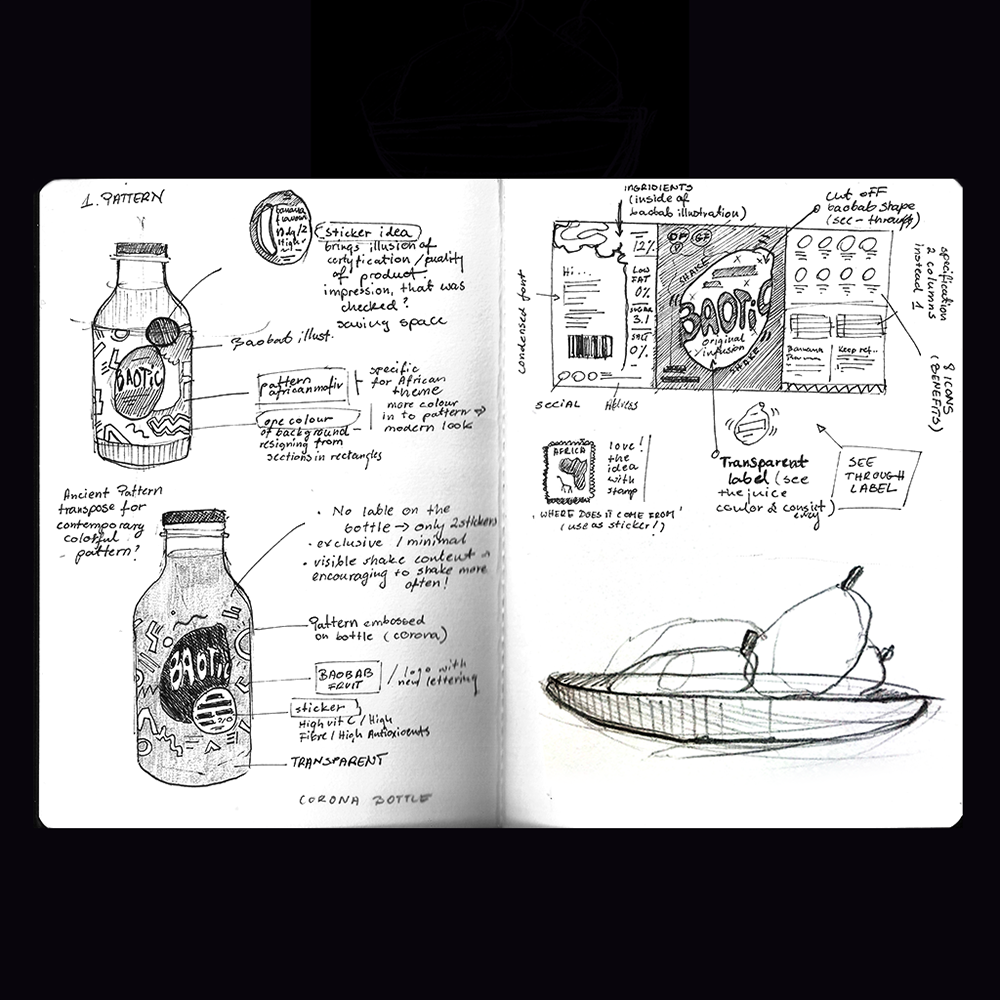 1. PATTERN
banana
flavour
High
sticker idea
brings illusion of
certyfication / quality
of product.
impression, that was
checked?
saving space
Baobab illust.
BAOTiC
pattern
african motiv
specific
for African
theme
one colour
of background
resigning from
sections in rectangles
more colour
in to pattern
modern look
Ancient Pattern
transpose for
contemporary
colorful
pattern?
• No lable on the
bottle → only 2 stickers
• exclusive / minimal
• visible shake content
encouraging to shake more
often!
Pattern embossed
on bottle (corona)
BAOTiC
BAOBAB
FRUIT
/ logo with
new lettering
sticker
High vit C / High
Fibre / High Antioxidents
TRANSPARENT
CORONA BOTTLE
INGRIDIENTS
(inside of
baobab illustration)
cut off
baobab shape
(see-through)
condensed font
Hi...
12%
LOW
FAT
0%
SUGAR
3.1
SALT
0%
GF
SHAKE
BAOTiC
original
infusion
SHAKE
Banana
Keep ref..
specification
2 columns
instead 1
8 ICONS
(BENEFITS)
SOCIAL
Adress
AFRICA
love!
the
idea
with
stamp
'WHERE DOES IT COME FROM'
(use as sticker!?)
Transparent
label (see
the juice
SEE
THROUGH
LABEL